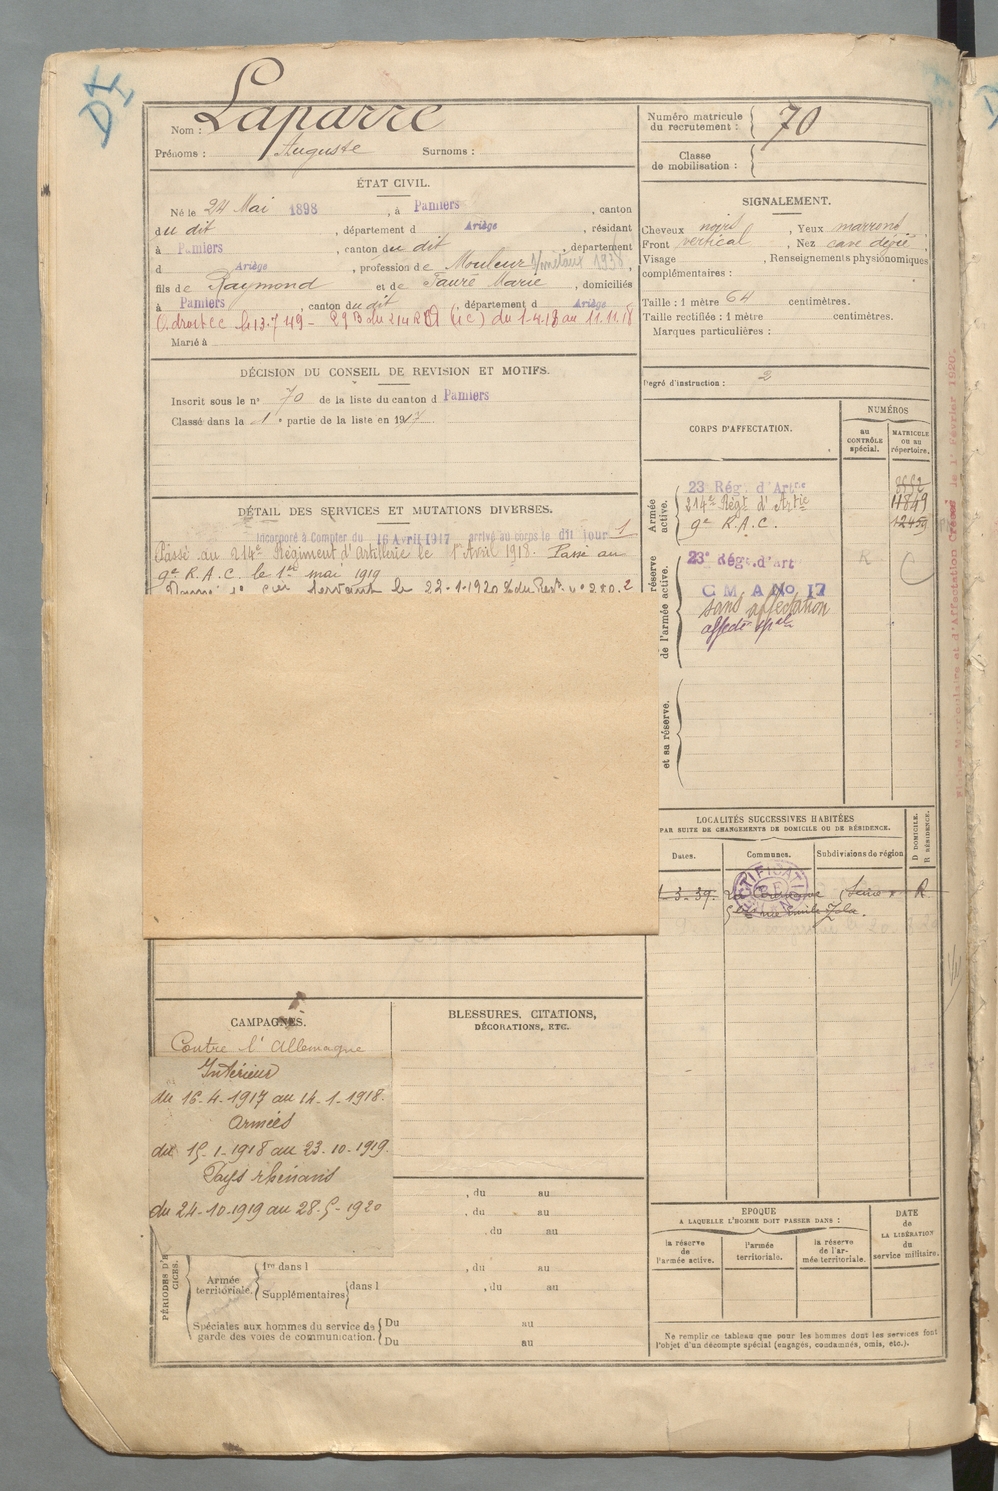 DI
Nom : Laparre
Prénoms : Auguste Surnoms :
Numéro matricule du recrutement : 70
Classe de mobilisation :
ÉTAT CIVIL.
Né le 24 Mai 1898, à Pamiers, canton
du dit, département d Ariège, résidant
à Pamiers, canton du dit, département
d Ariège, profession de Mouleur s/métaux 1938,
fils de Raymond et de Fauré Marie, domiciliés
à Pamiers, canton du dit, département d Ariège
C. droit CC le 13.7.49 - du 214 RA (ic) du 1-4-18 au 11.11.18
Marié à
SIGNALEMENT.
Cheveux noirs, Yeux marrons,
Front vertical, Nez cave
Visage , Renseignements physionomiques
complémentaires :
Taille : 1 mètre 64 centimètres.
Taille rectifiée : 1 mètre centimètres.
Marques particulières :
Degré d'instruction : 2
DÉCISION DU CONSEIL DE REVISION ET MOTIFS.
Inscrit sous le n° 70 de la liste du canton d Pamiers
Classé dans la 1e partie de la liste en 1917
CORPS D'AFFECTATION.
NUMÉROS
au CONTRÔLE spécial.
MATRICULE ou au répertoire.
Armée active.
23 Rég. d'Artie
214e Régt d'Artie 11849
9e R.A.C. 12459
réserve de l'armée active.
23e Rég. d'art R C
C M A No 17
sans affectation
affecté spal
et sa réserve.
DÉTAIL DES SERVICES ET MUTATIONS DIVERSES.
Incorporé à Compter du 16 Avril 1917 arrivé au corps le dit jour 1
Passé au 214e Régiment d'Artillerie le 1er Avril 1918. Passé au
9e R.A.C. le 1er mai 1919
servant le 22-1-1920 n° 280. 2
LOCALITÉS SUCCESSIVES HABITÉES
PAR SUITE DE CHANGEMENTS DE DOMICILE OU DE RÉSIDENCE.
Dates.
Communes.
Subdivisions de région
D DOMICILE. R RÉSIDENCE.
1-3-39. La Courneuve (Seine) R
rue Emile Zola.
RECTIFICATION
Fiches Matriculaire et d'Affectation Créées le 1 Février 1920.
CAMPAGNES.
Contre l'Allemagne
Intérieur
du 16-4-1917 au 14-1-1918.
Armées
du 15-1-1918 au 23-10-1919.
Pays rhénans
du 24-10-1919 au 28-5-1920
BLESSURES, CITATIONS,
DÉCORATIONS, ETC.
, du au
, du au
, du au
PÉRIODES D'E
CICES.
Armée territoriale.
1re dans l , du au
Supplémentaires dans l , du au
Spéciales aux hommes du service de garde des voies de communication.
Du au
Du au
EPOQUE
A LAQUELLE L'HOMME DOIT PASSER DANS :
la réserve de l'armée active.
l'armée territoriale.
la réserve de l'armée territoriale.
DATE de LA LIBÉRATION du service militaire.
Ne remplir ce tableau que pour les hommes dont les services font
l'objet d'un décompte spécial (engagés, condamnés, omis, etc.).